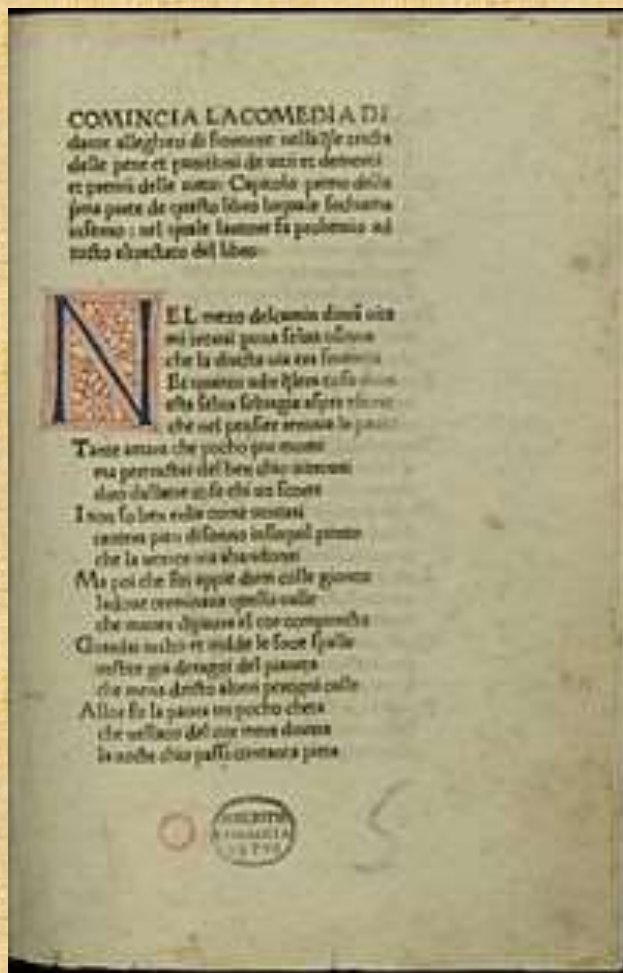 COMINCIA LA COMEDIA DI
dante alleghieri di fiorenze nella q̄le tracta
delle pene et punitioni de uitii et demeriti
et premii delle uirtu: Capitolo primo della
p̄ma parte de questo libro loquale sechiama
inferno: nel quale lautore fa prohemio ad
tucto eltractato del libro:
NEL mezo delcamin dinr̄a uita
mi trouai puna selua oscura
che la diricta uia era smarrita
Et quanto adir q̄lera cosa dura
esta selua seluagia aspra eforte
che nel pensier renoua la paura
Tante amara che pocho piu morte
ma pertractar del ben chio ui trouai
diro dellaltre cose chi uo scorte
I non so ben ridir come uentrai
tantera pien disonno insuquel punto
che la uerace uia abandonai
Ma poi che fui appie dum colle gionto
ladoue terminaua quella ualle
che mauea dipaura el cor compuncto
Guardai inalto et uidde le sue spalle
uestite gia deraggi del pianeta
che mena dricto altrui perogni calle
Allor fu la paura un pocho cheta
che nellaco del cor mera durata
la nocte chio passai contanta pieta